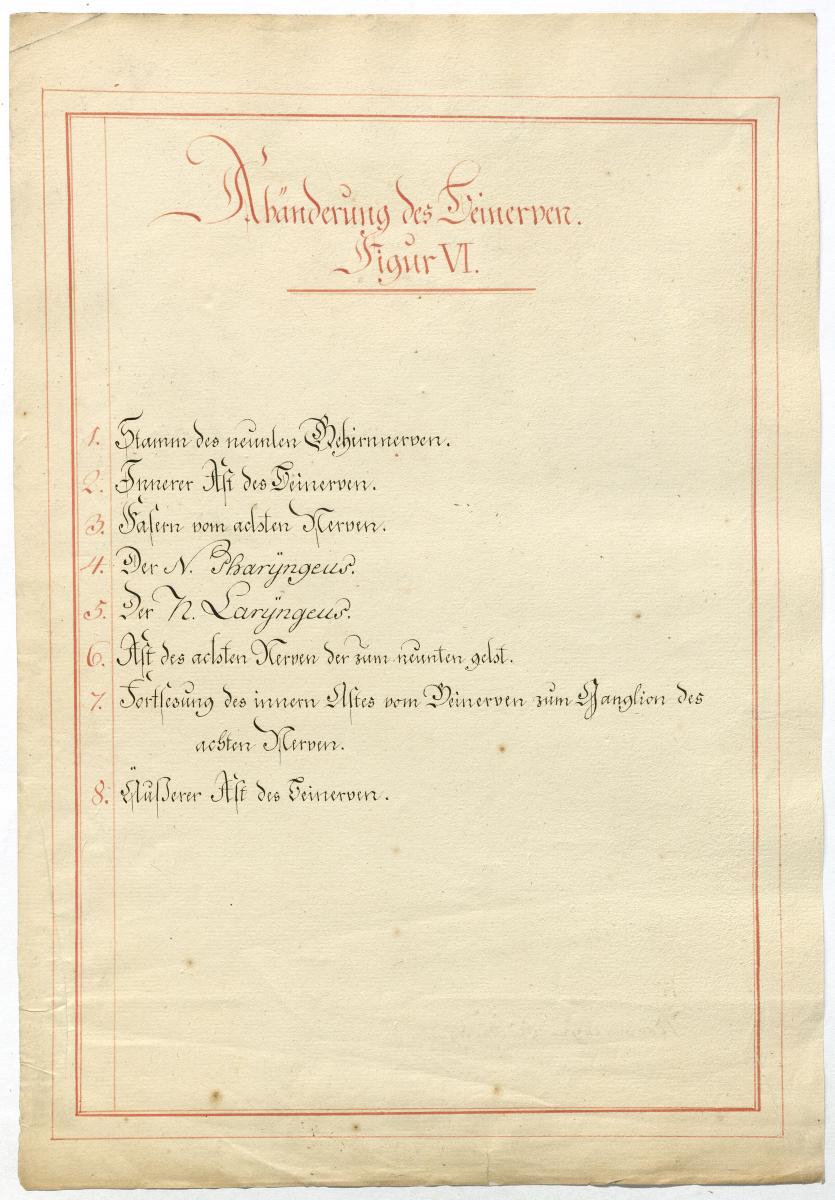 Abänderung des Beinerven.
Figur VI.
1. Stamm des neunten Gehirnnerven.
2. Innerer Ast des Beinerven.
3. Fasern vom achten Nerven.
4. Der N. Pharÿngeus.
5. Der N. Larÿngeus.
6. Ast des achten Nerven der zum neunten geht.
7. Fortsetzung des innern Astes vom Beinerven zum Ganglion des
achten Nerven.
8. Äußerer Ast des Beinerven.